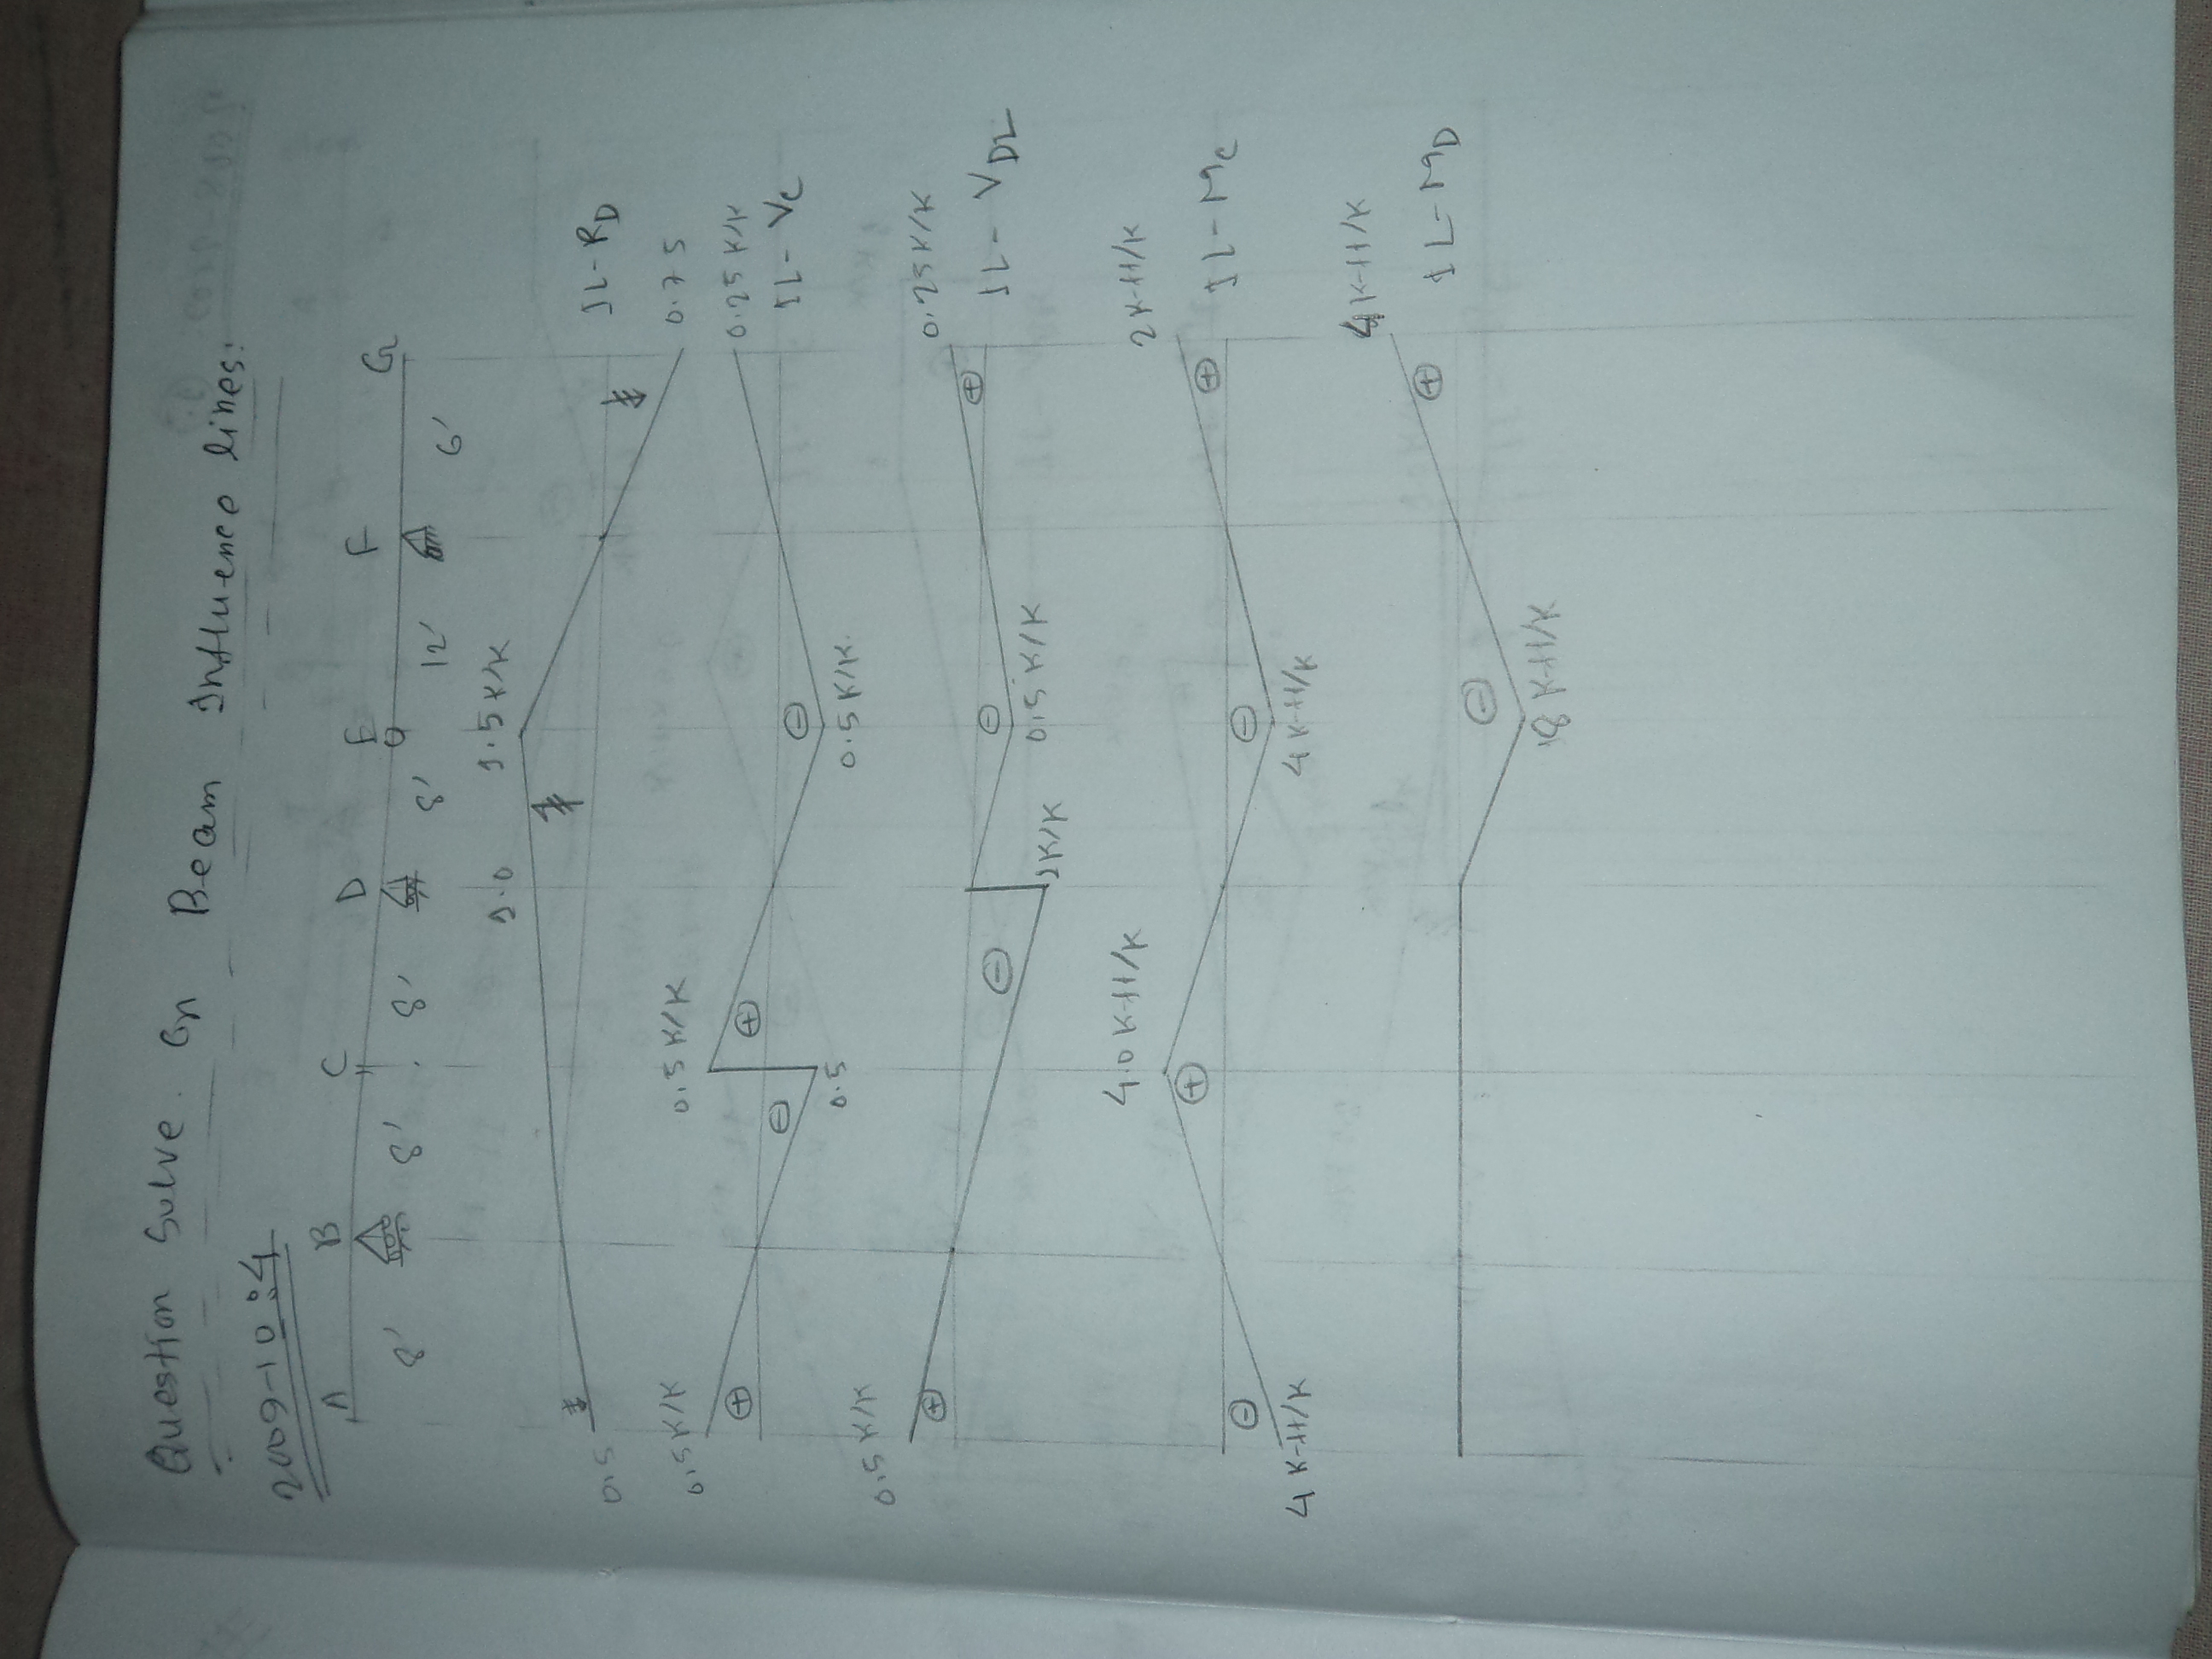 Question Solve. On Beam Influence lines:
2009-10:4
A B C D E F G
8' 8' 8' 8' 12' 6'
1.0 1.5 K/K
IL-RD
0.5 0.75
0.5 K/K 0.5 K/K 0.25 K/K
IL-VC
+ - + -
0.5 0.5 K/K.
0.5 K/K 0.25 K/K
IL-VDL
+ - - +
1K/K 0.5 K/K
4.0 K-ft/K 2 K-ft/K
IL-MC
- + - +
4 K-ft/K 4 K-ft/K
4K-ft/K
IL-MD
- +
8 K-ft/K